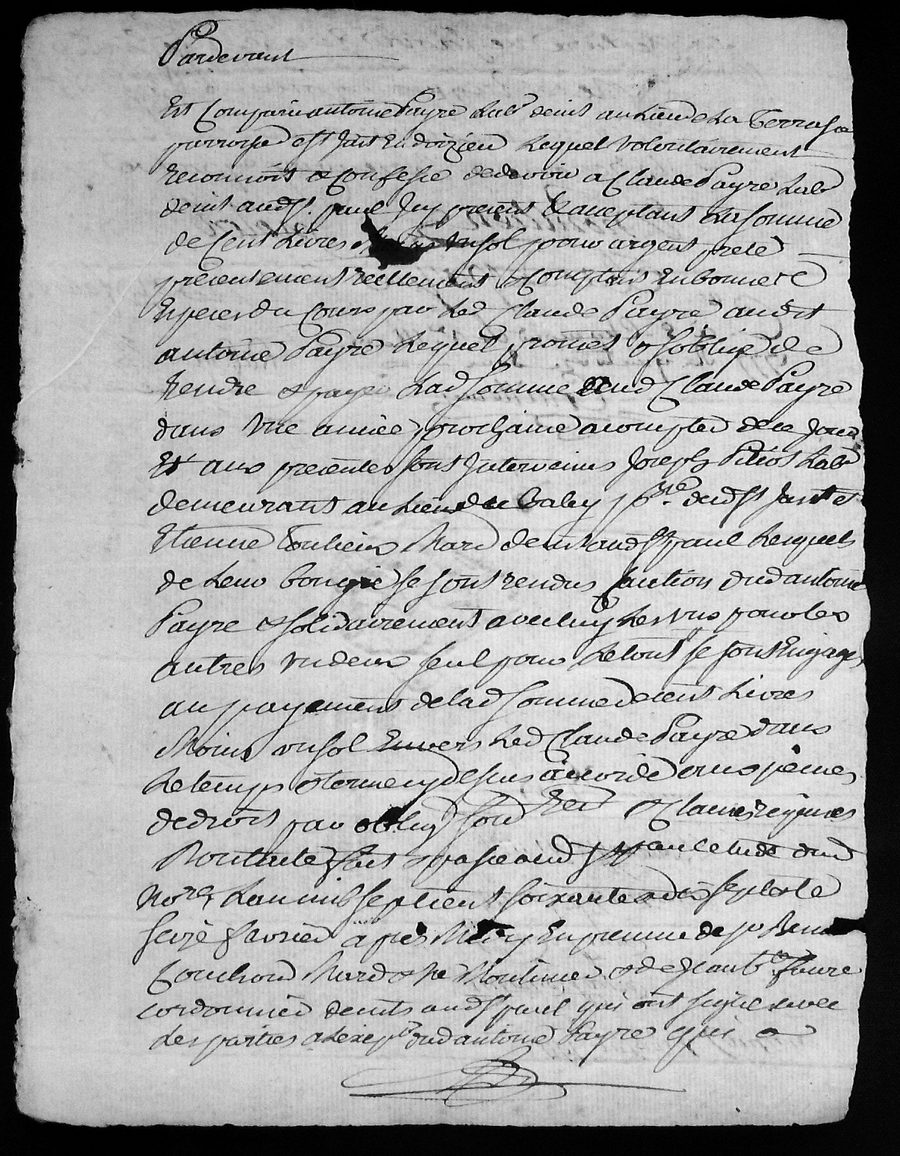 Pardevant
Est Comparu antoine Payre Lab.r dem.t au Lieu de La Terrasse
parroisse de st Just Endoizieu Lequel volontairement
Reconnoit & Confesse dedevoir a Claude Payre Lab.r
dem.t aud st. paul Icy present & acceptant La somme
de Cent Livres un sol pour argent preté
presentement réellement & Comptant En bonne
Especes du Cours par Led Claude Payre audit
antoine Payre Lequel promet & soblige de
Rendre & payer Lad somme aud Claude Payre
dans une année prochaine a compter de ce Jour
Et aux presentes sont Intervenus Joseph Lab.r
demeurant au Lieu de p.sse dud st Just &
Etienne March dem.t aud st paul Lesquels
de Leur bon gré se sont rendus Caution dud antoine
Payre & solidairement avec luy Les uns pour les
autres un deux seul pour Letout se sont Engagés
au payement de lad somme de cent Livres
Moins un sol Envers Led Claude Payre dans
Le temps & terme cy dessus accordé aux peines
de droit par oblig & Clauses
fait & passé aud st paul etude dud
No.re L'an mil sept cent soixante dix sept & le
seize fevrier après Midy En presence de
March & de faure
cordonnier dem.ts aud st paul qui ont signé avec
Les parties a Lexcep.on dud antoine Payre